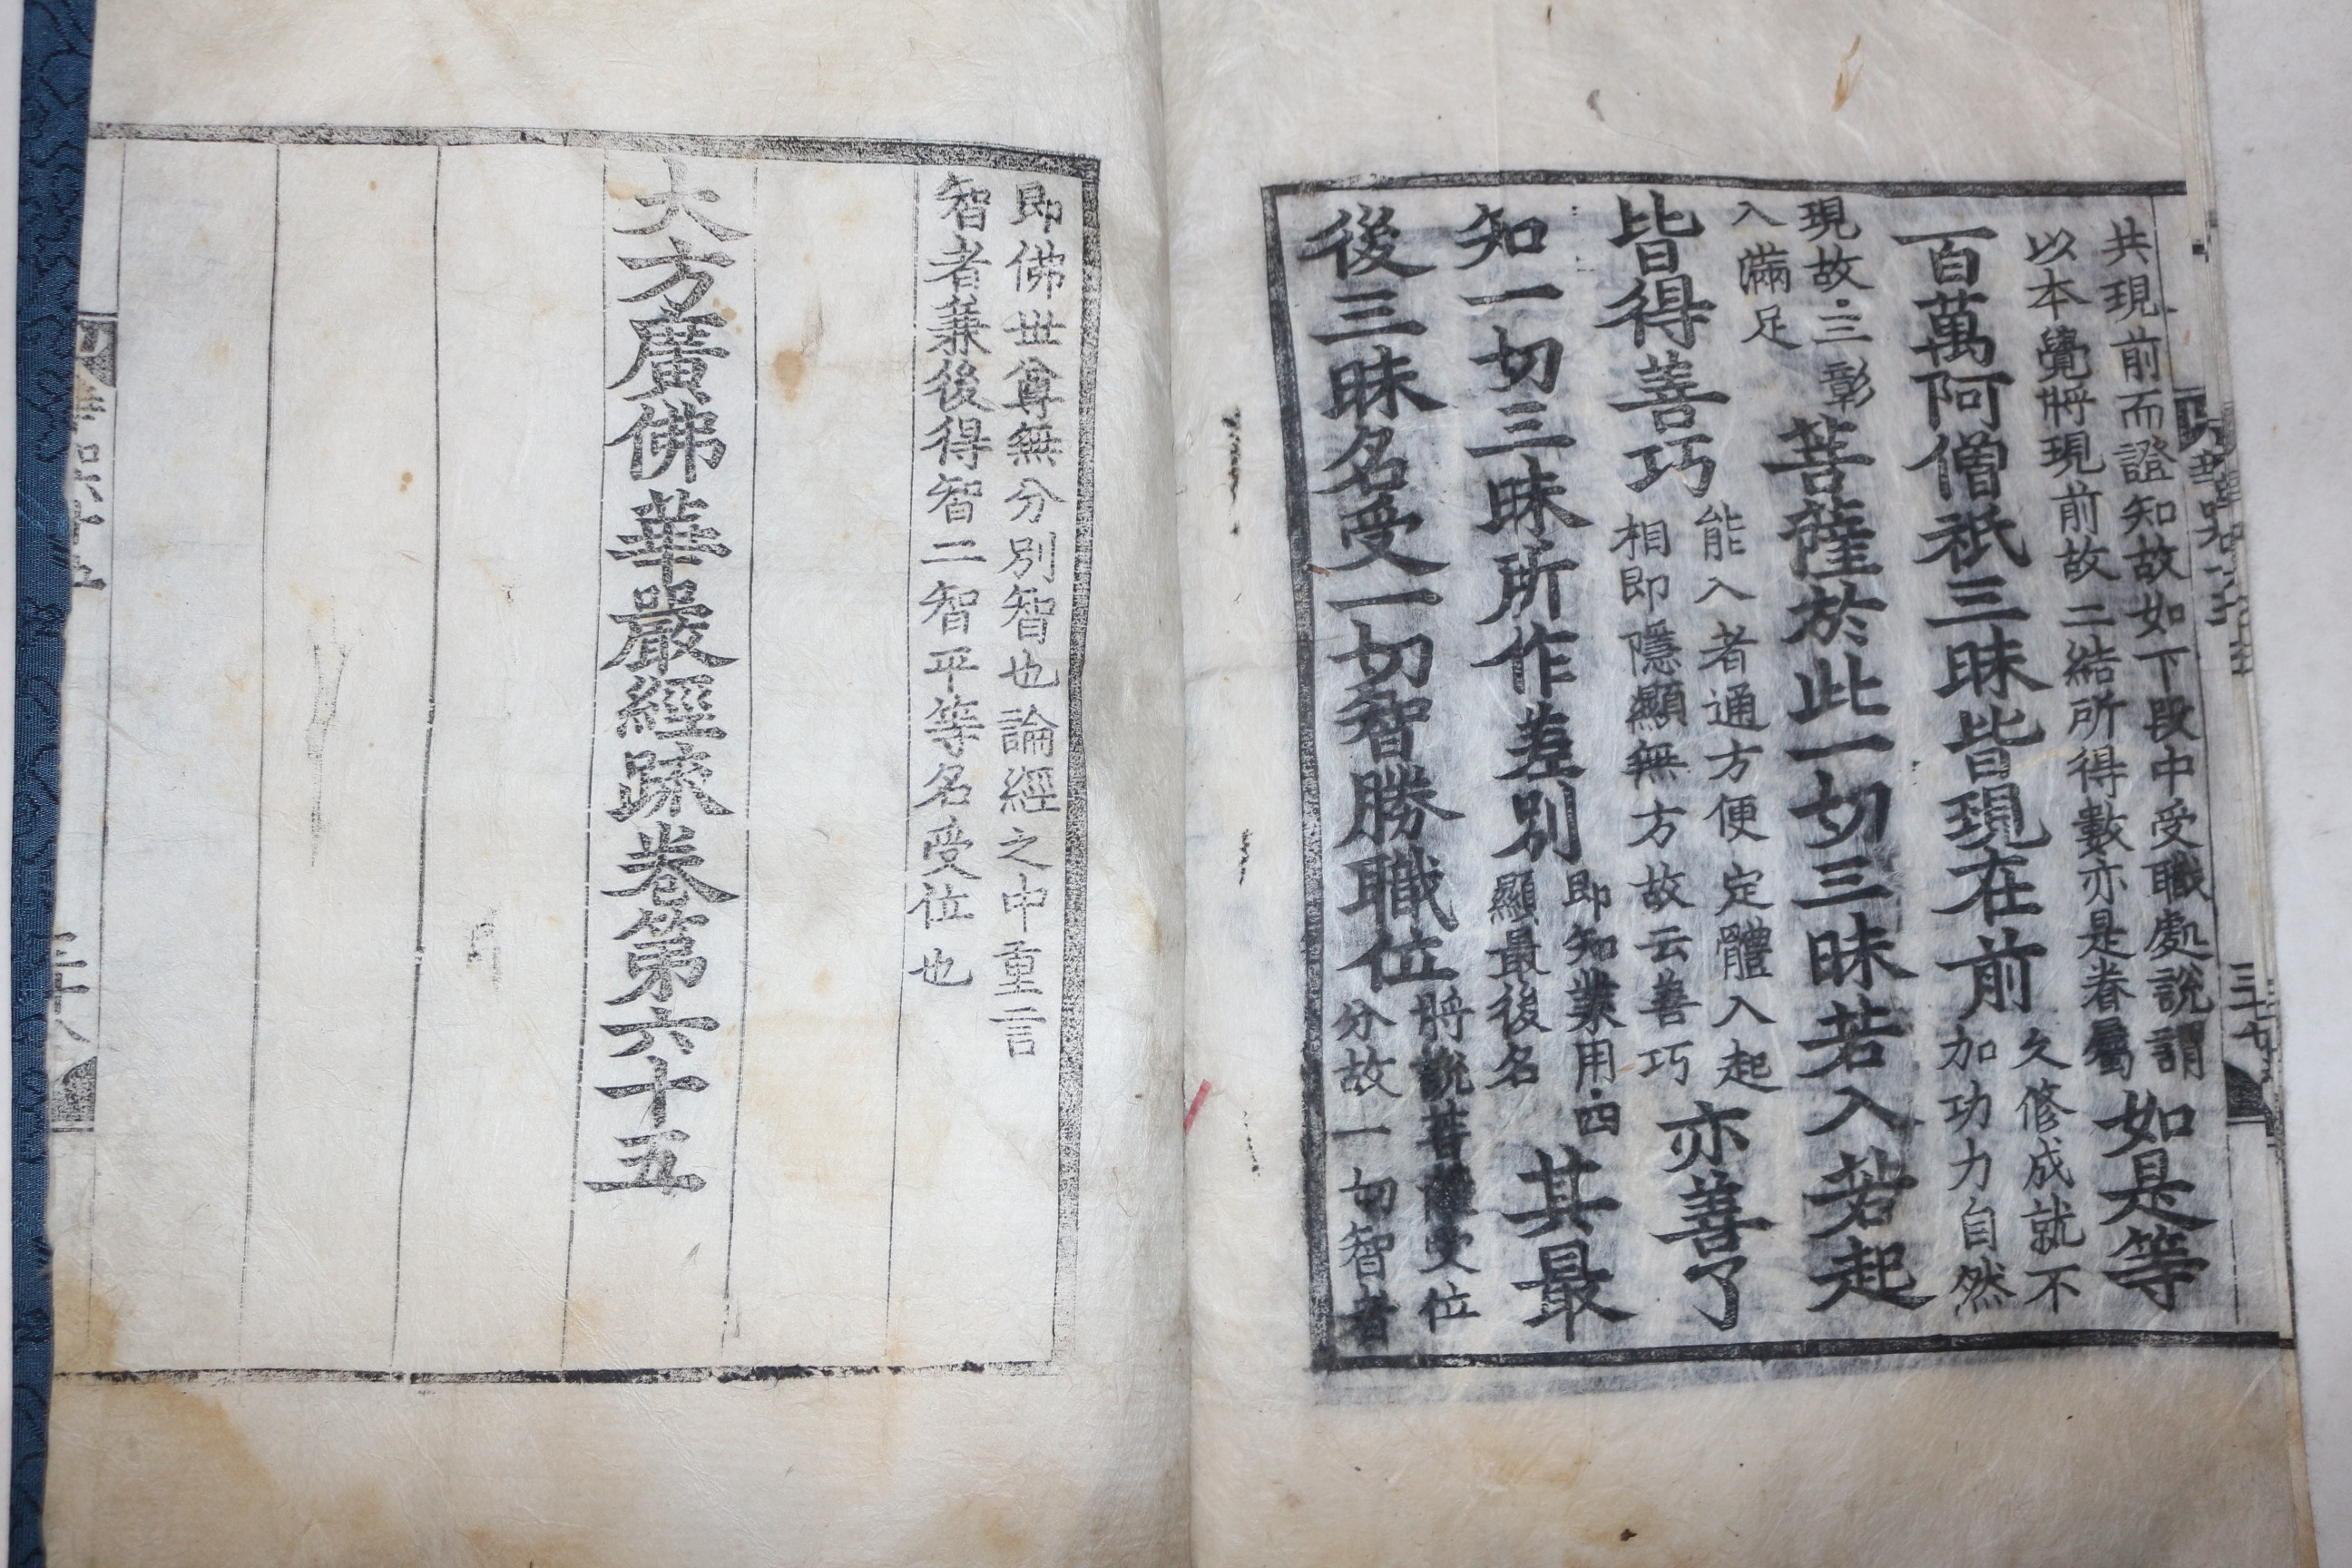 共現前而證知故如下段中受職處說謂
以本覺將現前故二結所得數亦是眷屬
如是等
百萬阿僧祇三昧皆現在前
久修成就不
加功力自然
現故·三彰
入滿足
菩薩於此一切三昧若入若起
皆得善巧
能入者通方便定體入起
相即隱顯無方故云善巧
亦善了
知一切三昧所作差別
即知業用·四
顯最後名
其最
後三昧名受一切智勝職位
將說菩薩受位
分故一切智者
即佛世尊無分別智也論經之中重言
智者兼後得智二智平等名受位也
大方廣佛華嚴經䟽卷第六十五
三十七